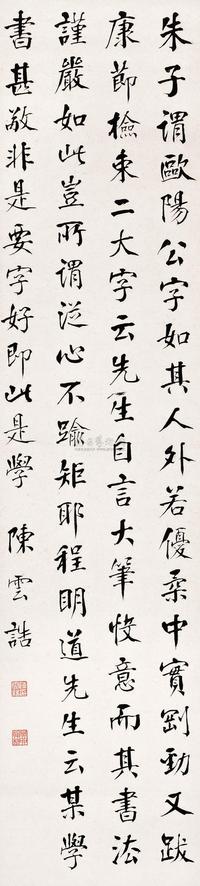 朱子謂歐陽公字如其人外若優柔中實剛勁又跋
康節檢束二大字云先生自言大筆快意而其書法
謹嚴如此豈所謂從心不踰矩耶程明道先生云某學
書甚敬非是要字好即此是學
陳雲誥